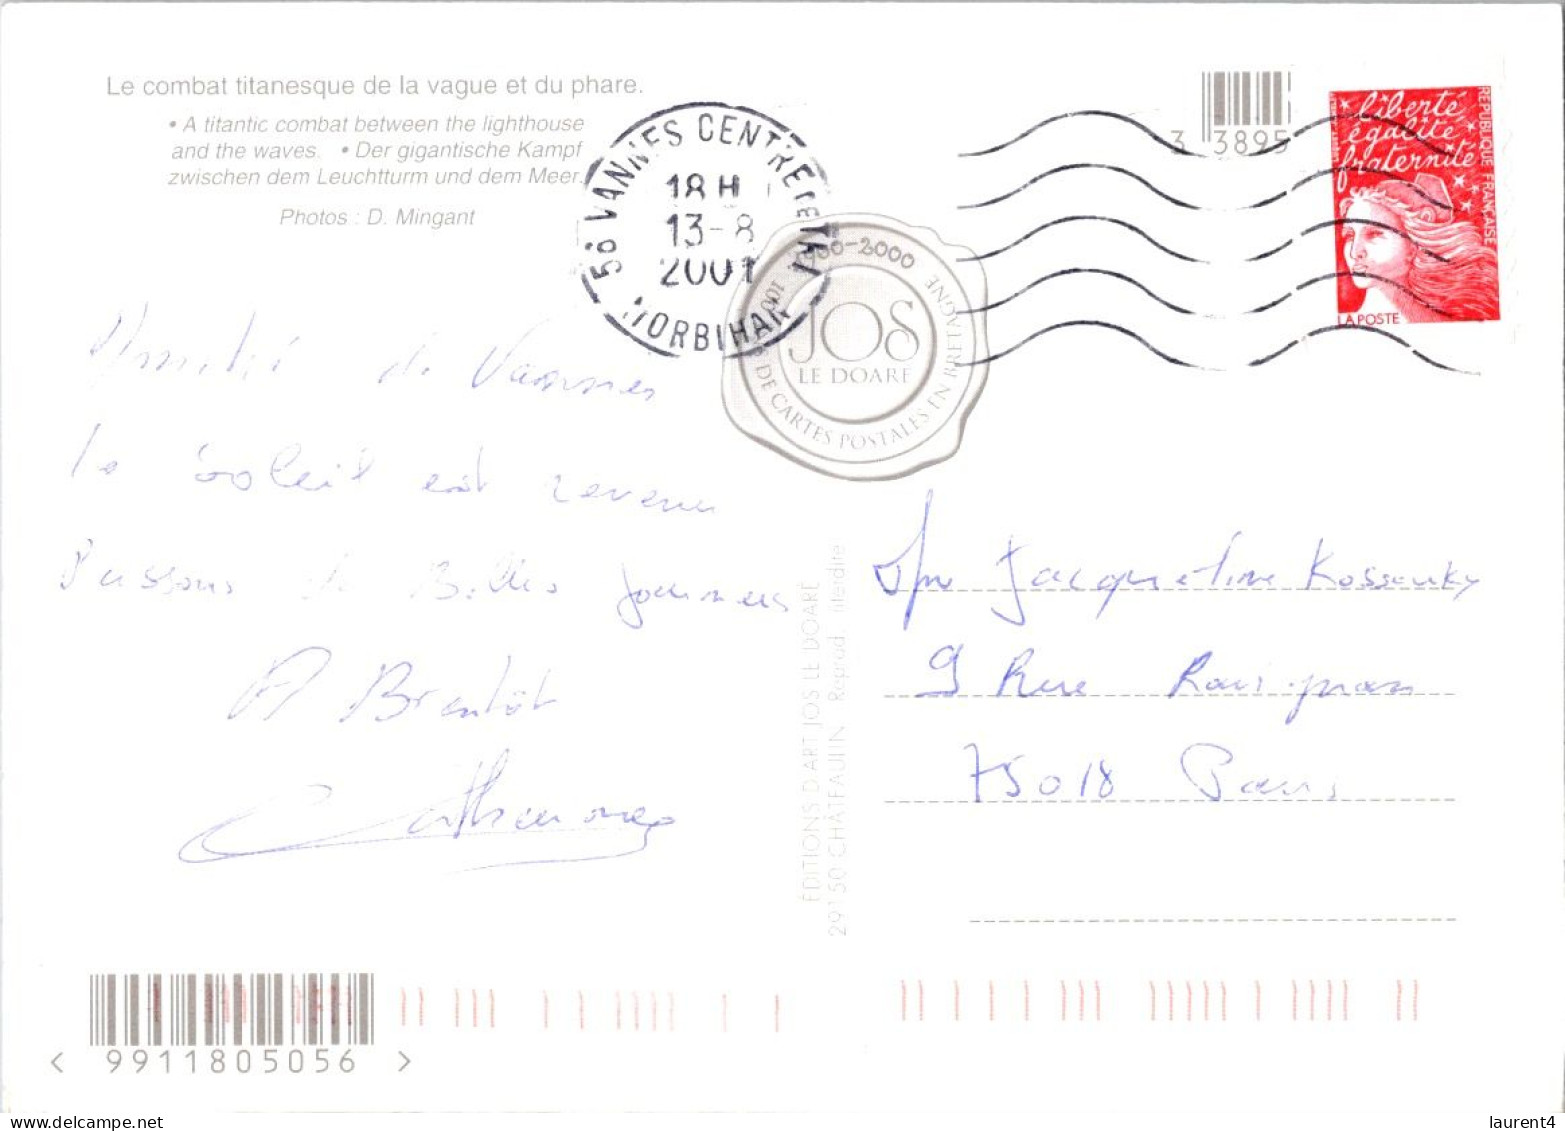 Le combat titanesque de la vague et du phare.
• A titantic combat between the lighthouse
and the waves. • Der gigantische Kampf
zwischen dem Leuchtturm und dem Meer.
Photos : D. Mingant
56 VANNES CENTRE
MORBIHAN
18 H
13-8
2001
1900-2000
JOS
LE DOARÉ
DE CARTES POSTALES EN BRETAGNE
3 3895
liberté
égalité
fraternité
RÉPUBLIQUE FRANÇAISE
LA POSTE
Amitié de Vannes
le soleil est revenu
Passons de Belles journées
A Bientôt
Catherine
ÉDITIONS D'ART JOS LE DOARÉ
29150 CHÂTEAULIN Reprod. interdite
Jacqueline
9 Rue Ravignan
75018 Paris
< 9911805056 >
laurent4